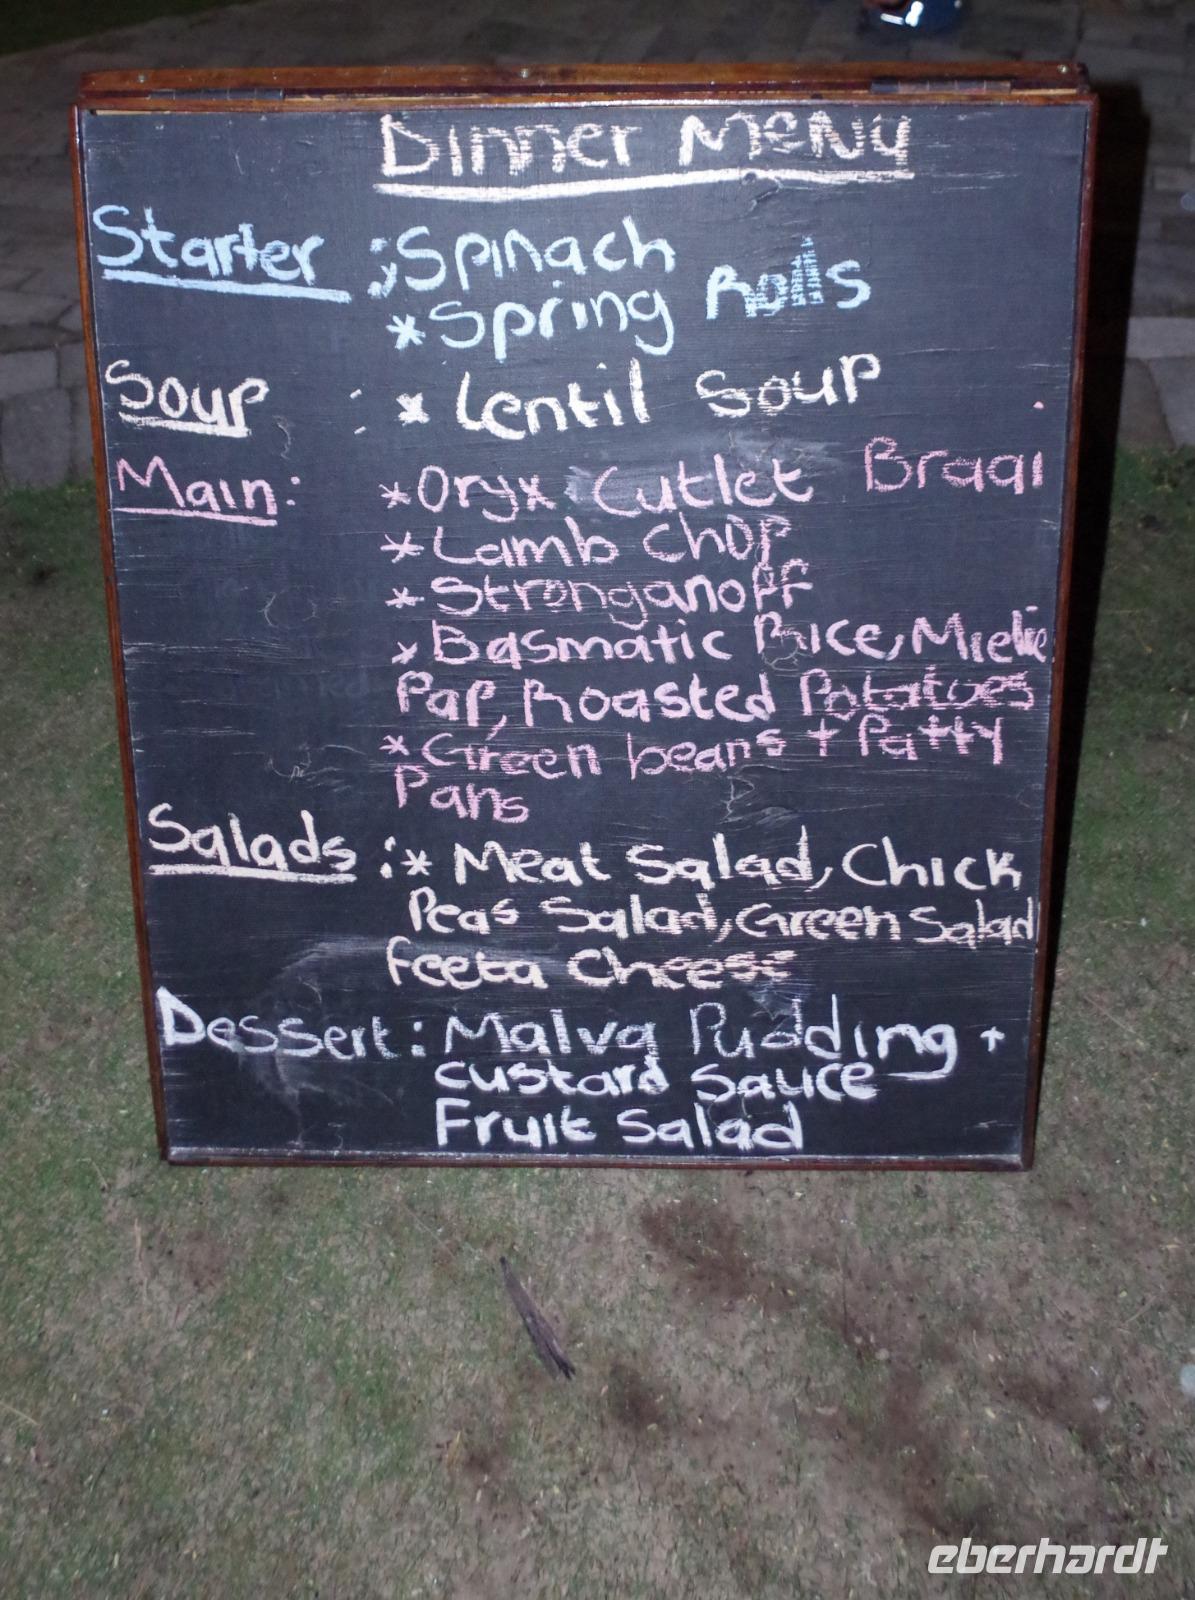 Dinner Menu
Starter : Spinach
* Spring Rolls
Soup : * Lentil Soup
Main : * Oryx Cutlet Braai
* Lamb Chop
* Stronganoff
* Basmatic Rice, Mielie
Pap, Roasted Potatoes
* Green beans + Patty
Pans
Salads : * Meat Salad, Chick
Peas Salad, Green Salad
Feeta Cheese
Dessert : Malva Pudding +
custard Sauce
Fruit Salad
eberhardt